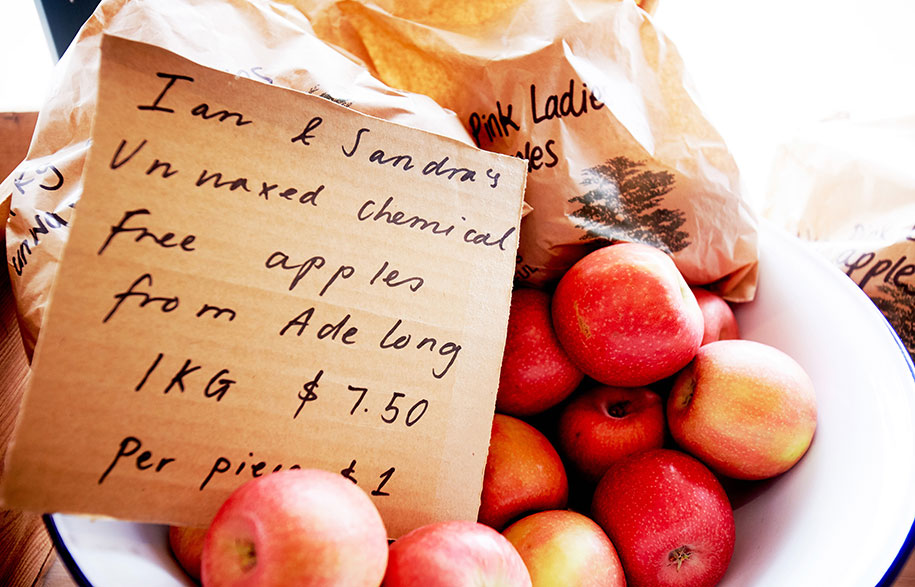 Ian & Sandra's
Unnaxed chemical
free apples
from Adelong
1KG $ 7.50
per piece $1
Pink Ladies
apples